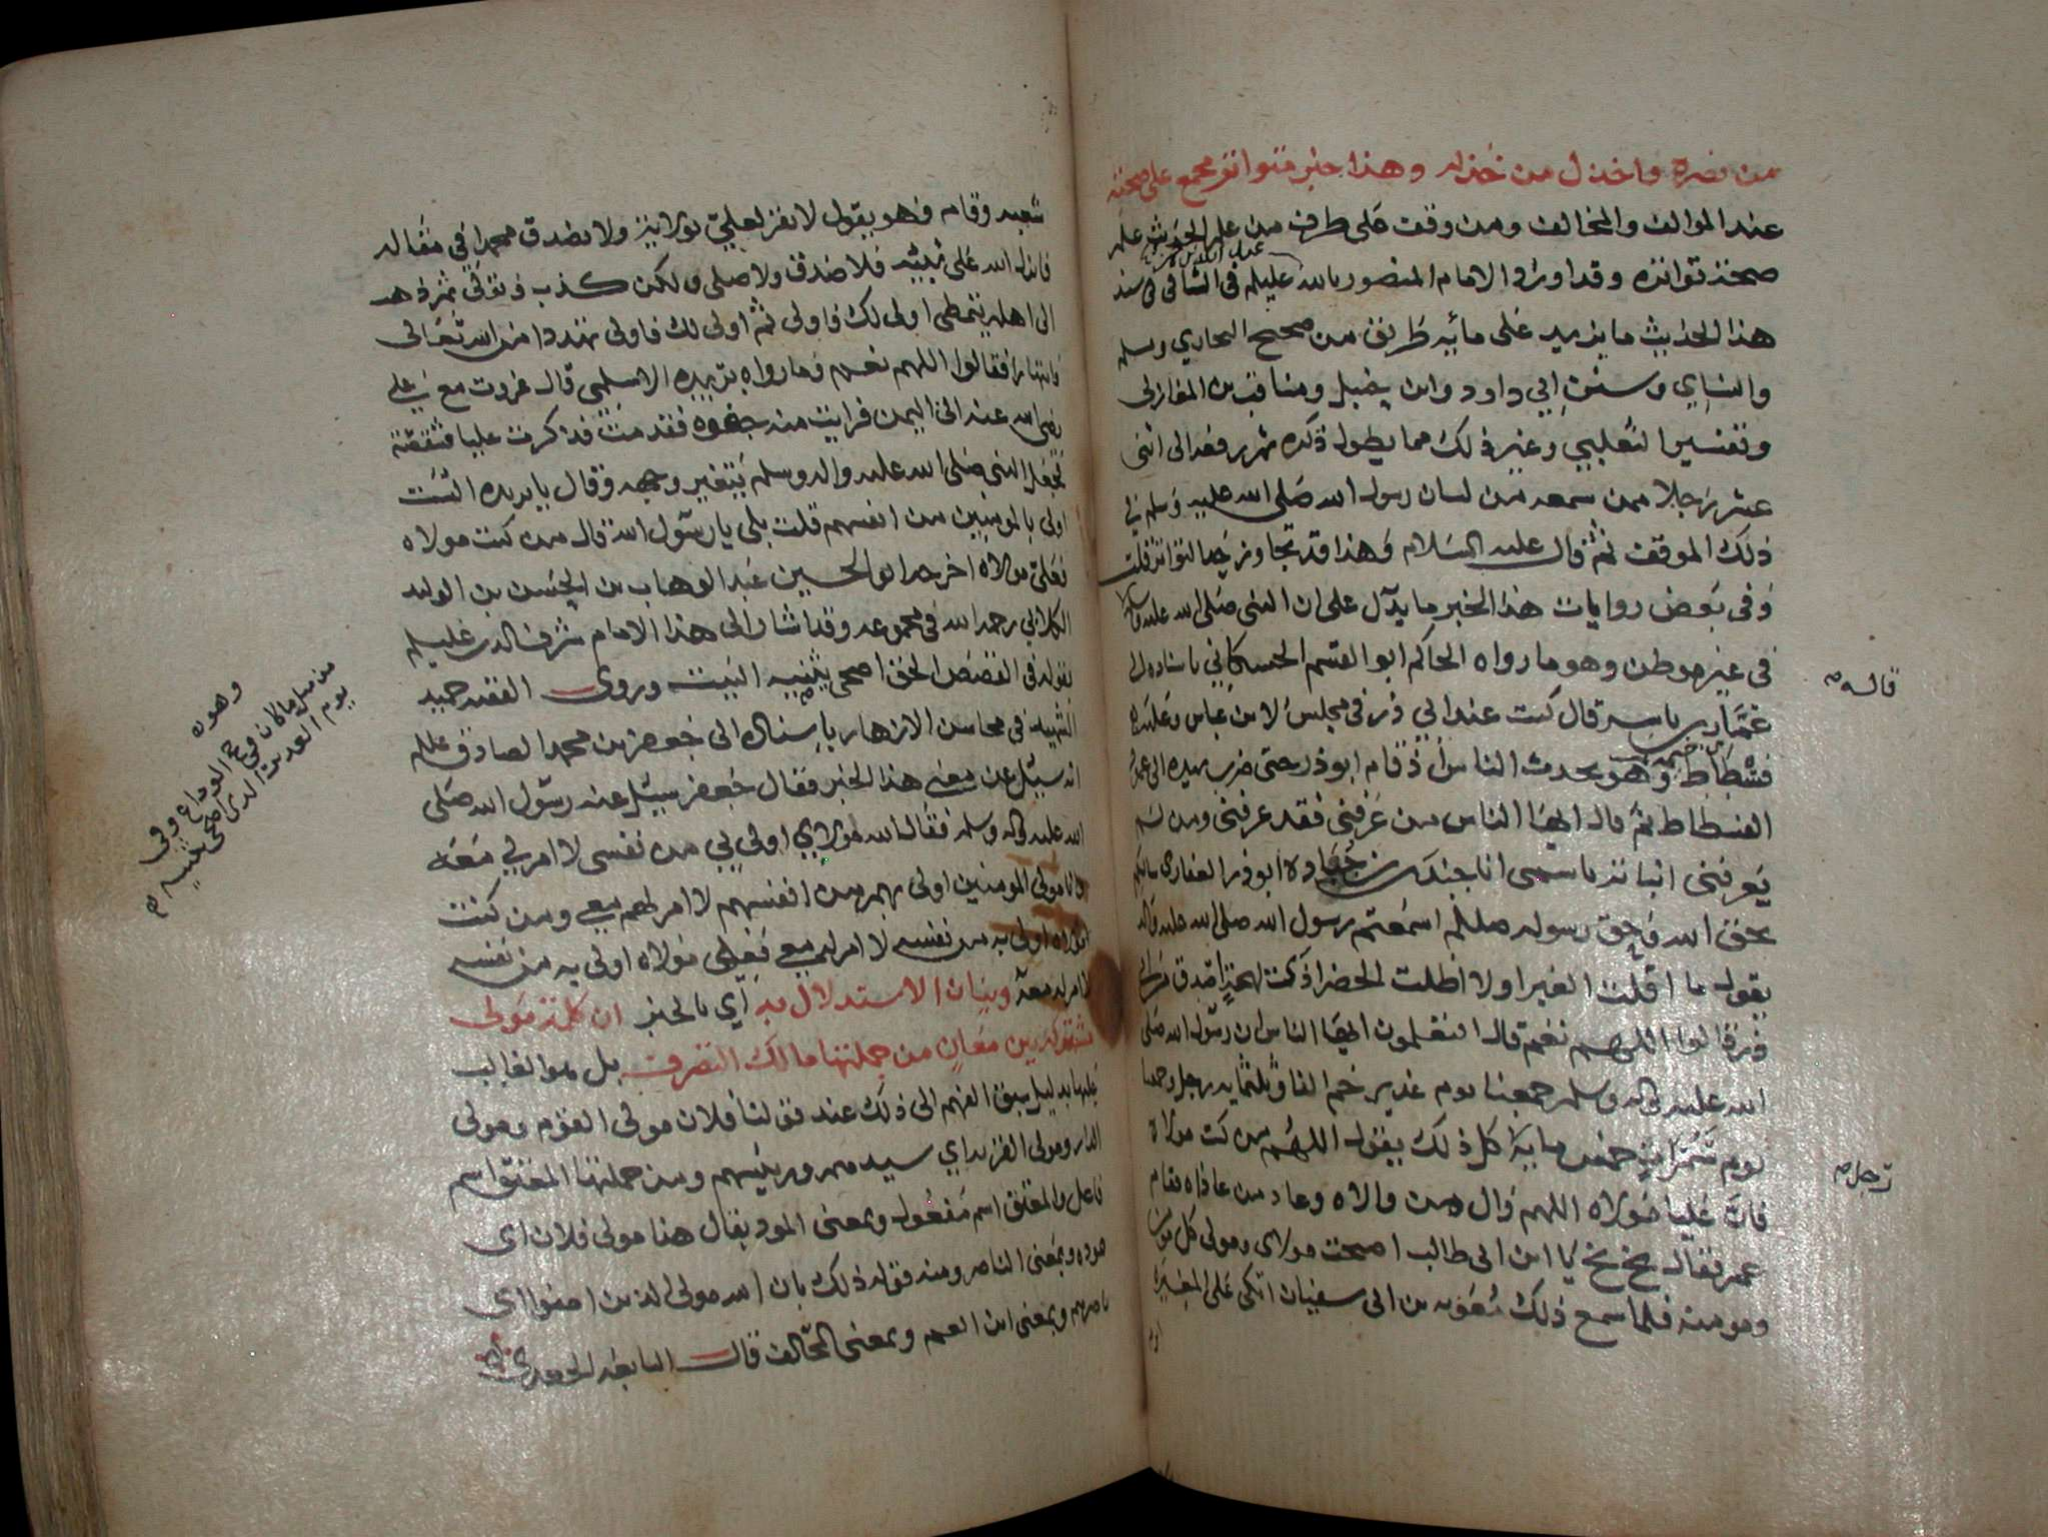 من نصره واخذل من خذله وهذا خبر متواتر مجمع على صحته
عند الموالف والمخالف ومن وقف على طرف من علم الحديث علم
صحته تواتره وقد اورد الامام المنصور بالله عليلم في الشافي في سند
هذا الحديث ما يزيد على مائه طريق من صحيح البخاري ومسلم
والنساي وسنن ابي داود وابن حنبل ومناقب بن المغازلى
وتفسير الثعلبي وغير ذلك مما يطول ذكره ثم رفعه الى اثنى
عشر رجلا ممن سمعه من لسان رسول الله صلى الله عليه وسلم في
ذلك الموقف ثم قال عليه السلام وهذا قد تجاوز حد التواتر قلت
وفى بعض روايات هذا الخبر ما يدل على ان النبى صلى الله عليه قاله
في غير موطن وهو ما رواه الحاكم ابو القسم الحسكاني باسناده الى
قاله
عمار بن ياسر قال كنت عند ابي ذر في مجلس لابن عباس وعليه
فسطاط وهو يحدث الناس اذ قام ابو ذر حتى ضرب بيده الى عمود
الفسطاط ثم قال ايها الناس من عرفني فقد عرفني ومن لم
يعرفني انباته باسمى انا جندب بن جناده ابو ذر الغفاري سالتكم
بحق الله وحق رسوله صللم اسمعتم رسول الله صلى الله عليه واله
يقول ما اقلت الغبرا ولا اظلت الخضرا ذا لهجة اصدق من ابي
ذر قالوا اللهم نعم قال اتعلمون ايها الناس ان رسول الله صلى
الله عليه واله وسلم جمعنا يوم غدير خم الفا وثلثمايه رجل وجمعنا
يوم سمرات خمس مايه كل ذلك يقول اللهم من كنت مولاه
رجل
فان عليا مولاه اللهم وال من والاه وعاد من عاداه فقام
عمر فقال بخ بخ يا ابن ابى طالب اصبحت مولاى ومولى كل مومن
ومومنه فلما سمع ذلك معويه بن ابى سفيان اتكى على المغيره
شعبه وقام وهو يقول لا نقر لعلي بولايه ولا نصدق محمدا في مقاله
فانزل الله على نبيه فلا صدق ولا صلى ولكن كذب وتولى ثم ذهب
الى اهله يتمطى اولى لك فاولى ثم اولى لك فاولى تهددا من الله تعالى
وانتهارا فقالوا اللهم نعم وما رواه بريده الاسلمى قال غزوت مع علي
رضى الله عنه الى اليمن فرايت منه جفوه فقدمت فذاكرت عليا فتنقصته
فجعل النبي صلى الله عليه واله وسلم يتغير وجهه وقال يا بريده الست
اولى بالمومنين من انفسهم قلت بلى يا رسول الله قال من كنت مولاه
فعلى مولاه اخرجه ابو الحسين عبد الوهاب بن الحسن بن الوليد
الكلابي رحمه الله في مجموعه وقد اشار الى هذا الامام شرف الدين عليلم
بقوله في القصص الحق اضحى يثنيه البيت وروى الفقيه حميد
وهو
من ميل ما كان في حج الوداع وفي
يوم الغدير الذي اضحى يثنيه
الشهيد في محاسن الازهار باسناده الى جعفر بن محمد الصادق عليلم
انه سيل عن معنى هذا الخبر فقال جعفر سيل عنه رسول الله صلى
الله عليه واله وسلم فقال الله مولاي اولى بي من نفسى لا امر لي معه
وانا مولى المومنين اولى بهم من انفسهم لا امر لهم معي ومن كنت
مولاه اولى به من نفسه لا امر له معي فعلى مولاه اولى به من نفسه
لا امر له معه وبيان الاستدلال به اي بالخبر ان كلمة مولى
مشتركة بين معان من جملتها مالك التصرف بل هو الغالب
عليها بدليل سبق الفهم الى ذلك عند قولنا فلان مولى القوم ومولى
الدار ومولى القريه اي سيدهم ورييسهم ومن جملتها المعتق اسم
فاعل والمعتق اسم مفعول وبمعنى المود يقال هنا مولى فلان اى
موده وبمعنى الناصر ومنه قوله ذلك بان الله مولى الذين امنوا اى
ناصرهم وبمعنى ابن العم وبمعنى المحالف قال النابغه الجعدي